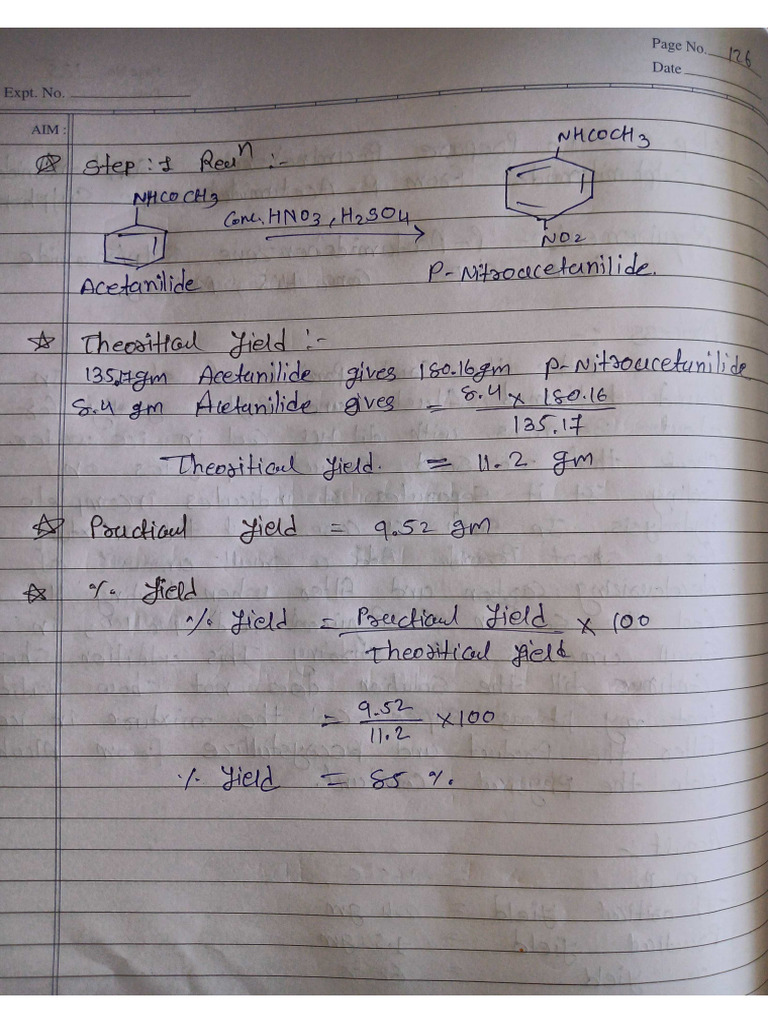 Page No. 126
Date
Expt. No.
AIM :
Step : 1 Reaⁿ :-
NHCOCH3
NHCOCH3
Conc. HNO3, H2SO4
NO2
Acetanilide
P-Nitroacetanilide.
Theositical Yield :-
135.17gm Acetanilide gives 180.16gm p-Nitroacetanilide
8.4 gm Acetanilide gives = 8.4 x 180.16
135.17
Theositical Yield. = 11.2 gm
Practical Yield = 9.52 gm
% Yield
% Yield = Practical Yield x 100
Theositical Yield
= 9.52 x100
11.2
% Yield = 85 %.